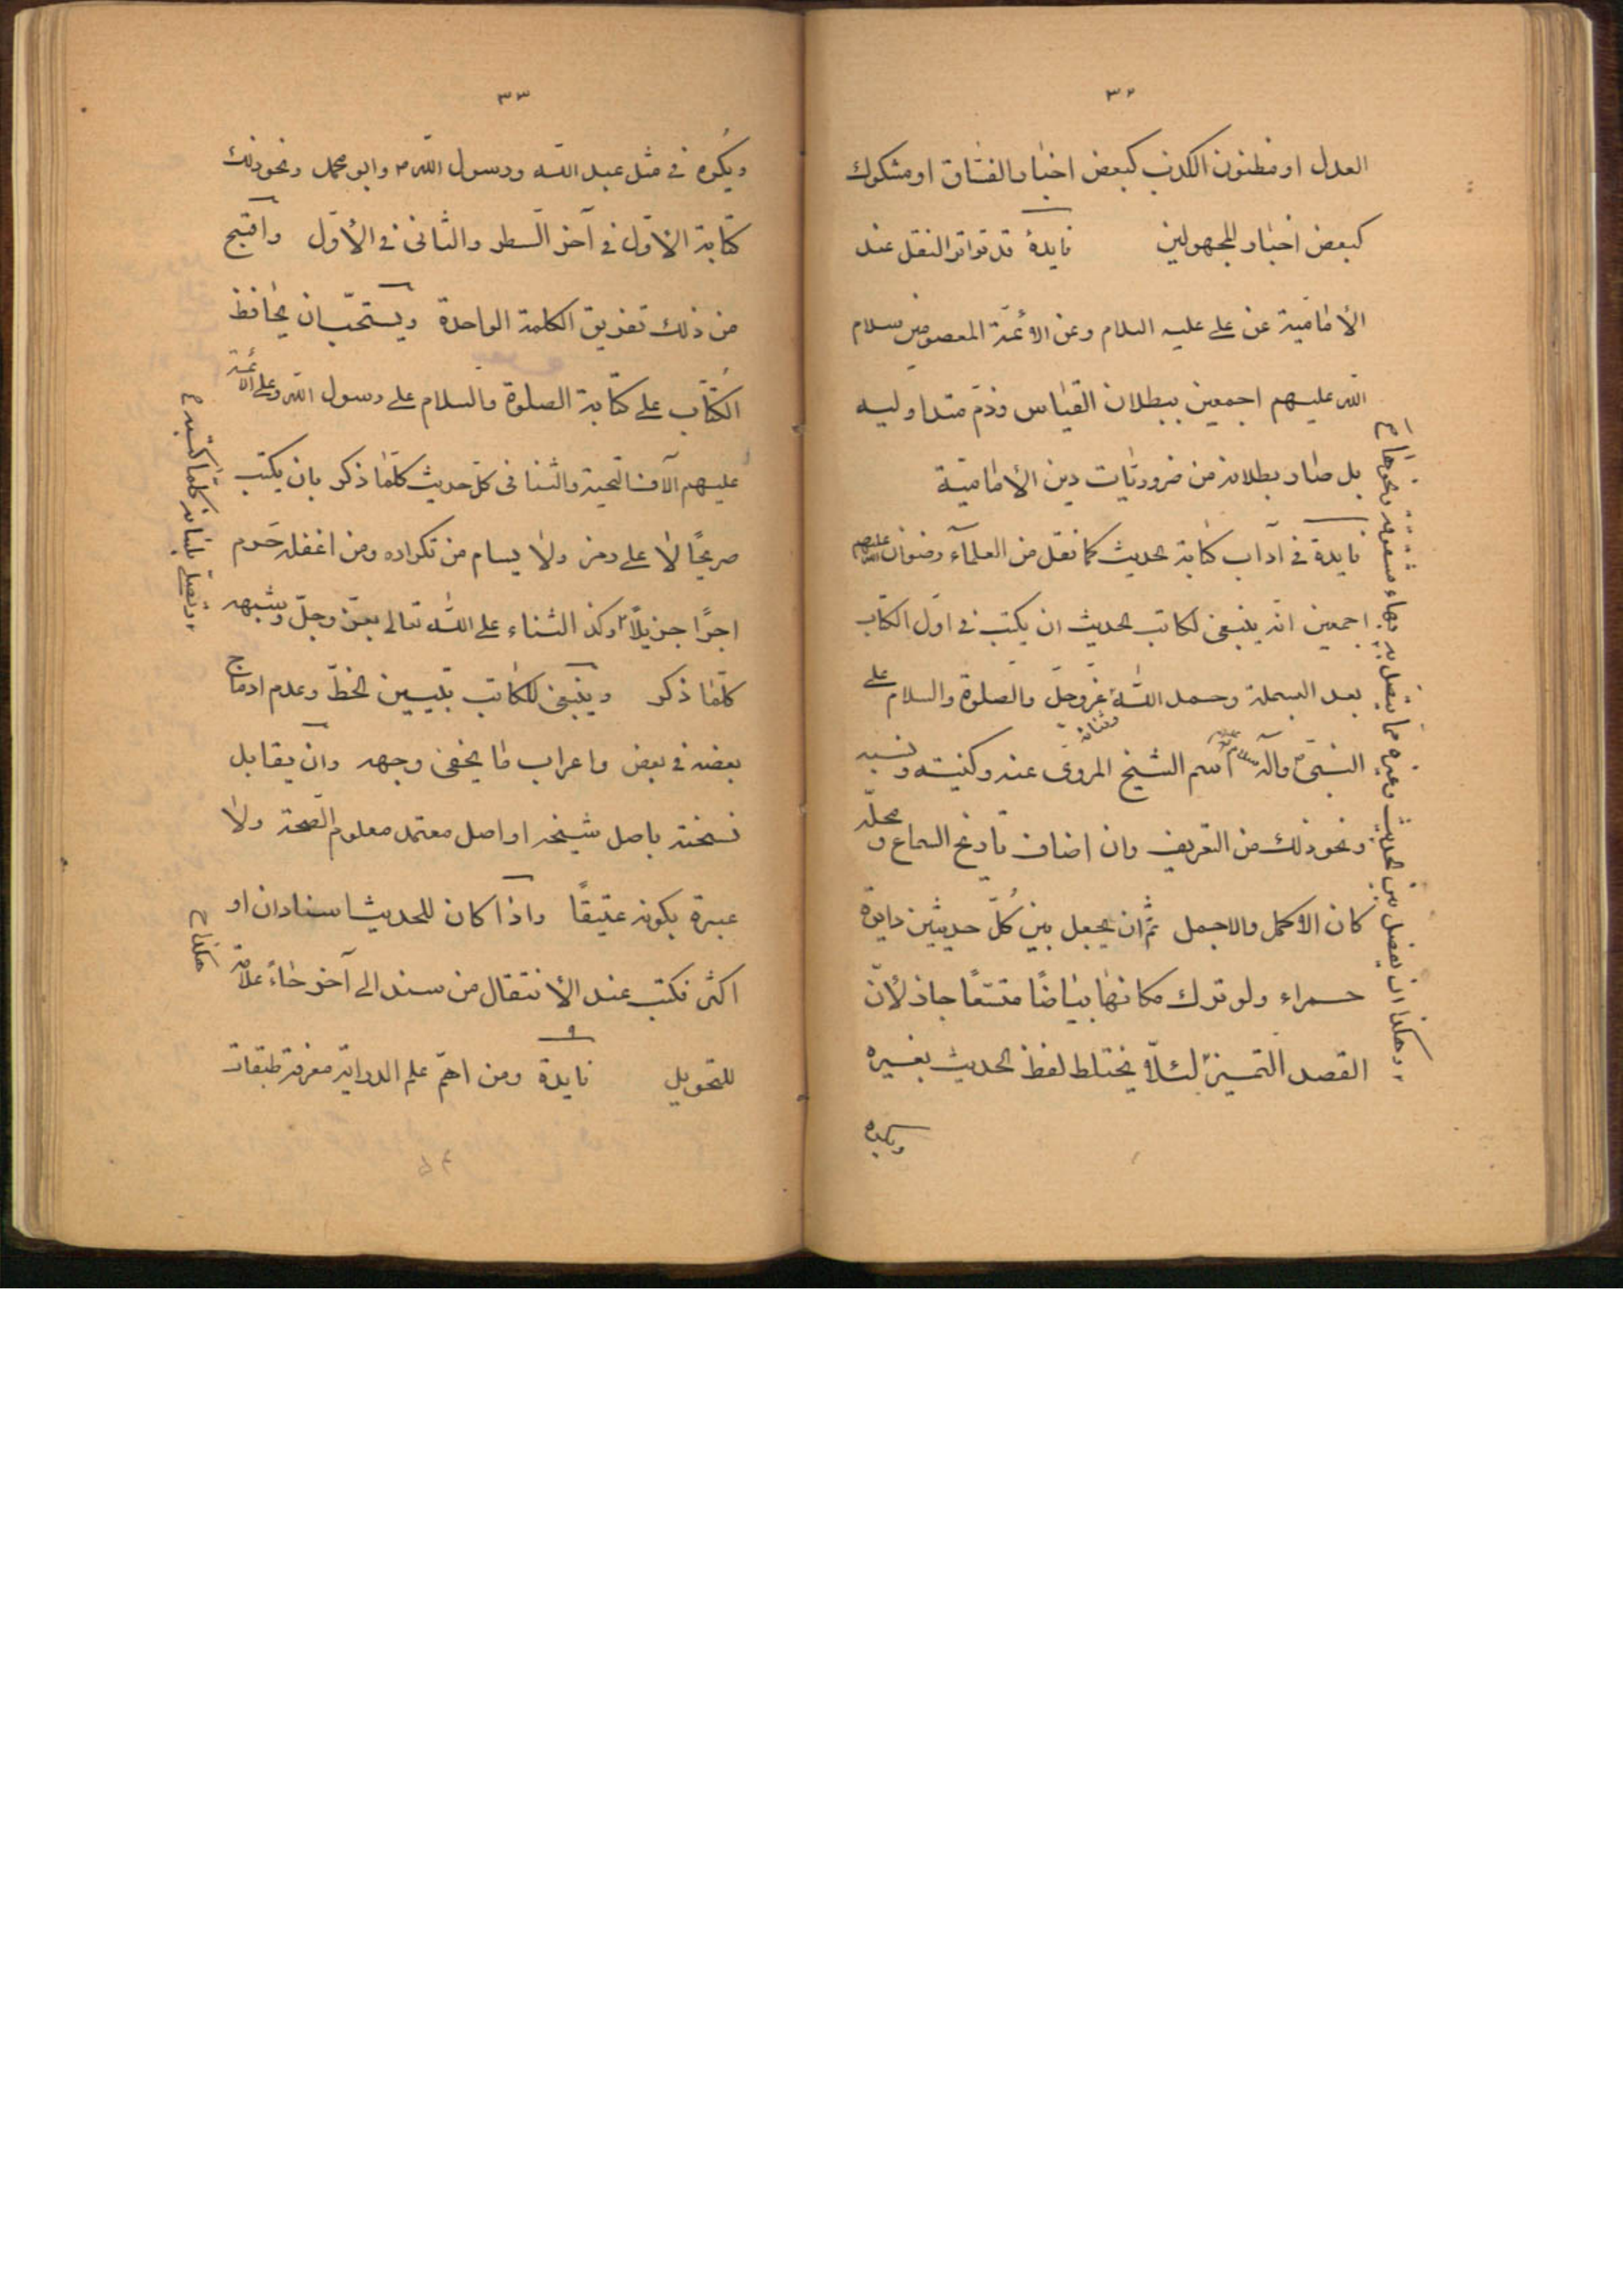 ٣٢
العدل او مظنون الكذب كبعض اخبار الفسّاق او مشكوك
كبعض اخبار المجهولين فايدة قد تواتر النقل عند
الأماميّة عن علي عليه السلام وعن الأئمّة المعصومين سلام
الله عليهم اجمعين ببطلان القياس وذمّ متداوليه
بل صار بطلانه من ضروريّات دين الأماميّة
فايدة في آداب كتابة الحديث كما نقل من العلمآء رضوان الله عليهم
اجمعين انّه ينبغي لكاتب الحديث ان يكتب في اوّل الكتاب
بعد البسملة وحمد اللّه عزّوجلّ وثنائه والصلوة والسلام على
النبيّ وآله اسم الشيخ المروى عنه وكنيته ونسبه
ونحو ذلك من التعريف وان اضاف تاريخ السماع و محلّه
كان الأكمل والاجمل ثمّ ان يجعل بين كُلّ حديثين دايرة
حمراء ولو ترك مكانها بياضًا متسعًا جاز لأنّ
القصد التميز لئلاّ يختلط لفظ الحديث بغيره
ويكره
وهكذا ان يفصل بين الحديث وغيره مما يتصل به بهاء مشقوقة ونحوها م
٣٣
ويُكره في مثل عبد اللّه ورسول اللّه م وابو محمد ونحو ذلك
كتابة الأوّل في آخر السطر والثّاني في الأوّل واقبح
من ذلك تفريق الكلمة الواحدة ويستحبّ ان يحافظ
الكُتّاب على كتابة الصلوة والسلام على رسول اللّه وعلى الأئمة
عليهم آلاف التحية والثنا فى كلّ حديث كلّما ذكر بان يكتب
صريحًا لا على رمز ولا يسام من تكراره ومن اغفله حرم
اجرًا جزيلًا وكذا الثناء على اللّه تعالى بعزّ وجلّ وشبهه
كلّما ذكر وينبغي للكاتب تبيين الخطّ وعدم ادماج
بعضه في بعض واعراب ما يخفى وجهه وان يقابل
نسخته باصل شيخه او اصل معتمد معلوم الصّحة ولا
عبرة بكونه عتيقًا واذا كان للحديث اسنادان او
اكثر فكتب عند الأنتقال من سند الى آخر حاءً علامة
للتحويل فايدة ومن اهمّ علم الدراية معرفة طبقات
ويصلّي بلسانه كلّما كتبه م
هكذا ح